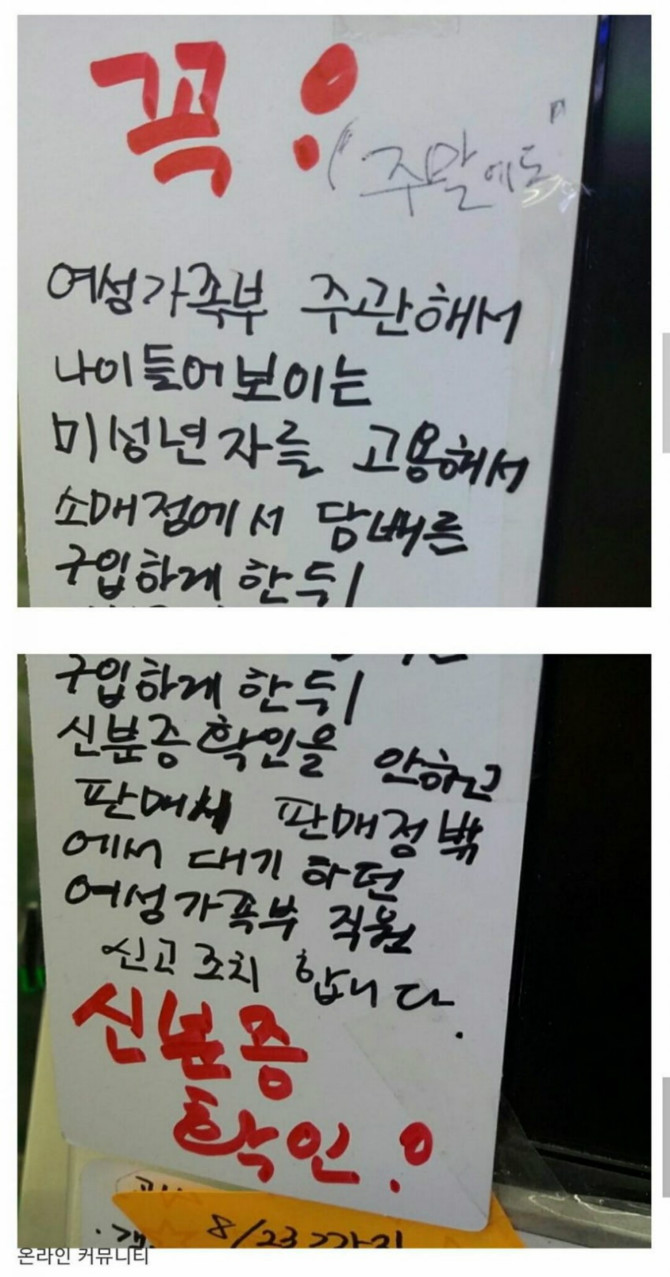 꼭!
"주말에도"
여성가족부 주관해서
나이들어보이는
미성년자를 고용해서
소매점에서 담배를
구입하게 한 뒤
구입하게 한 뒤
신분증확인을 안하고
판매시 판매점밖
에서 대기하던
여성가족부 직원
신고조치 합니다.
신분증
확인!
8/23 까지
온라인 커뮤니티